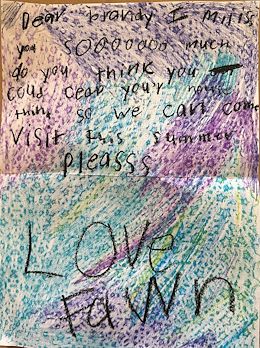 Dear brandy I miss
you SOOOOOOO much
do you think you
coud ceap your house
thing so we can come
visit this summer
pleasss
LOve
FaWn